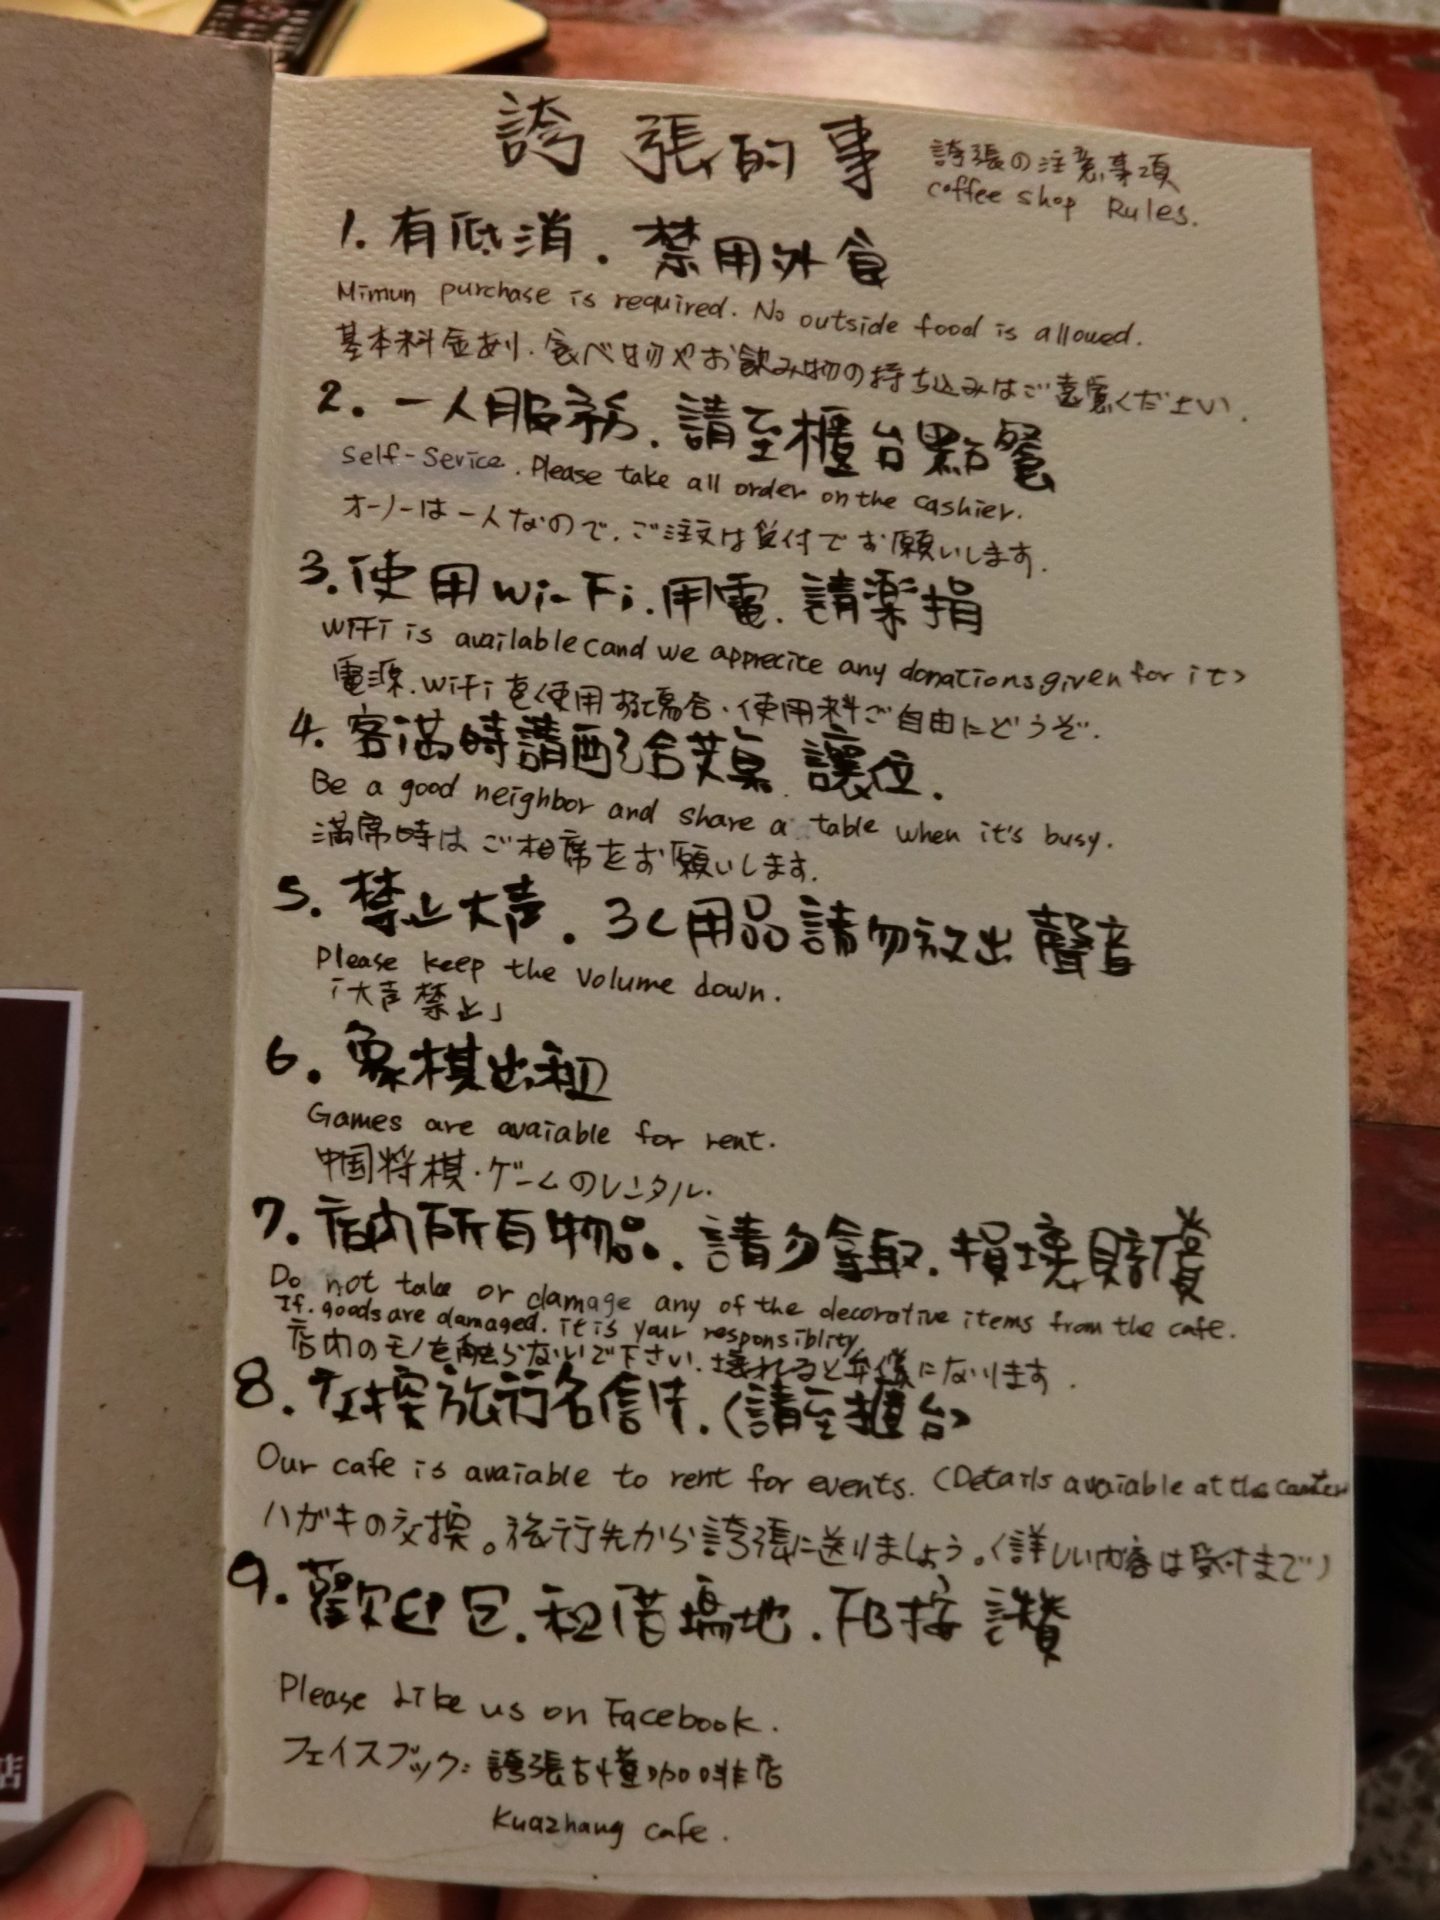 誇張的事
誇張の注意事項
coffee shop Rules.
1. 有低消. 禁用外食
Mimun purchase is required. No outside food is allowed.
基本料金あり. 食べ物やお飲み物の持ち込みはご遠慮ください.
2. 一人服務. 請至櫃台點餐
Self-Service. Please take all order on the cashier.
オーナーは一人なので. ご注文は受付でお願いします.
3. 使用wi-Fi. 用電. 請樂捐
WIFI is available (and we apprecite any donations given for it)
電源. WiFiを使用する場合. 使用料ご自由にどうぞ.
4. 客滿時請配合併桌. 讓位.
Be a good neighbor and share a table when it's busy.
満席時はご相席をお願いします.
5. 禁止大声. 3C用品請勿放出聲音
Please keep the volume down.
「大声禁止」
6. 象棋出租
Games are avaiable for rent.
中国将棋・ゲームのレンタル.
7. 店內所有物品. 請勿拿取. 損壞賠償
Do not take or damage any of the decorative items from the cafe.
If. goods are damaged. it is your responsiblity
店内のモノを触らないで下さい. 壊れると弁償になります.
8. 交換旅行名信片. (請至櫃台)
Our cafe is avaiable to rent for events. (Details avaiable at the
ハガキの交換。旅行先から誇張に送りましょう。(詳しい内容は受付まで)
9. 歡迎包. 租借場地. FB按讚
Please Like us on Facebook.
フェイスブック: 誇張古懂咖啡店
Kuazhang cafe.
店